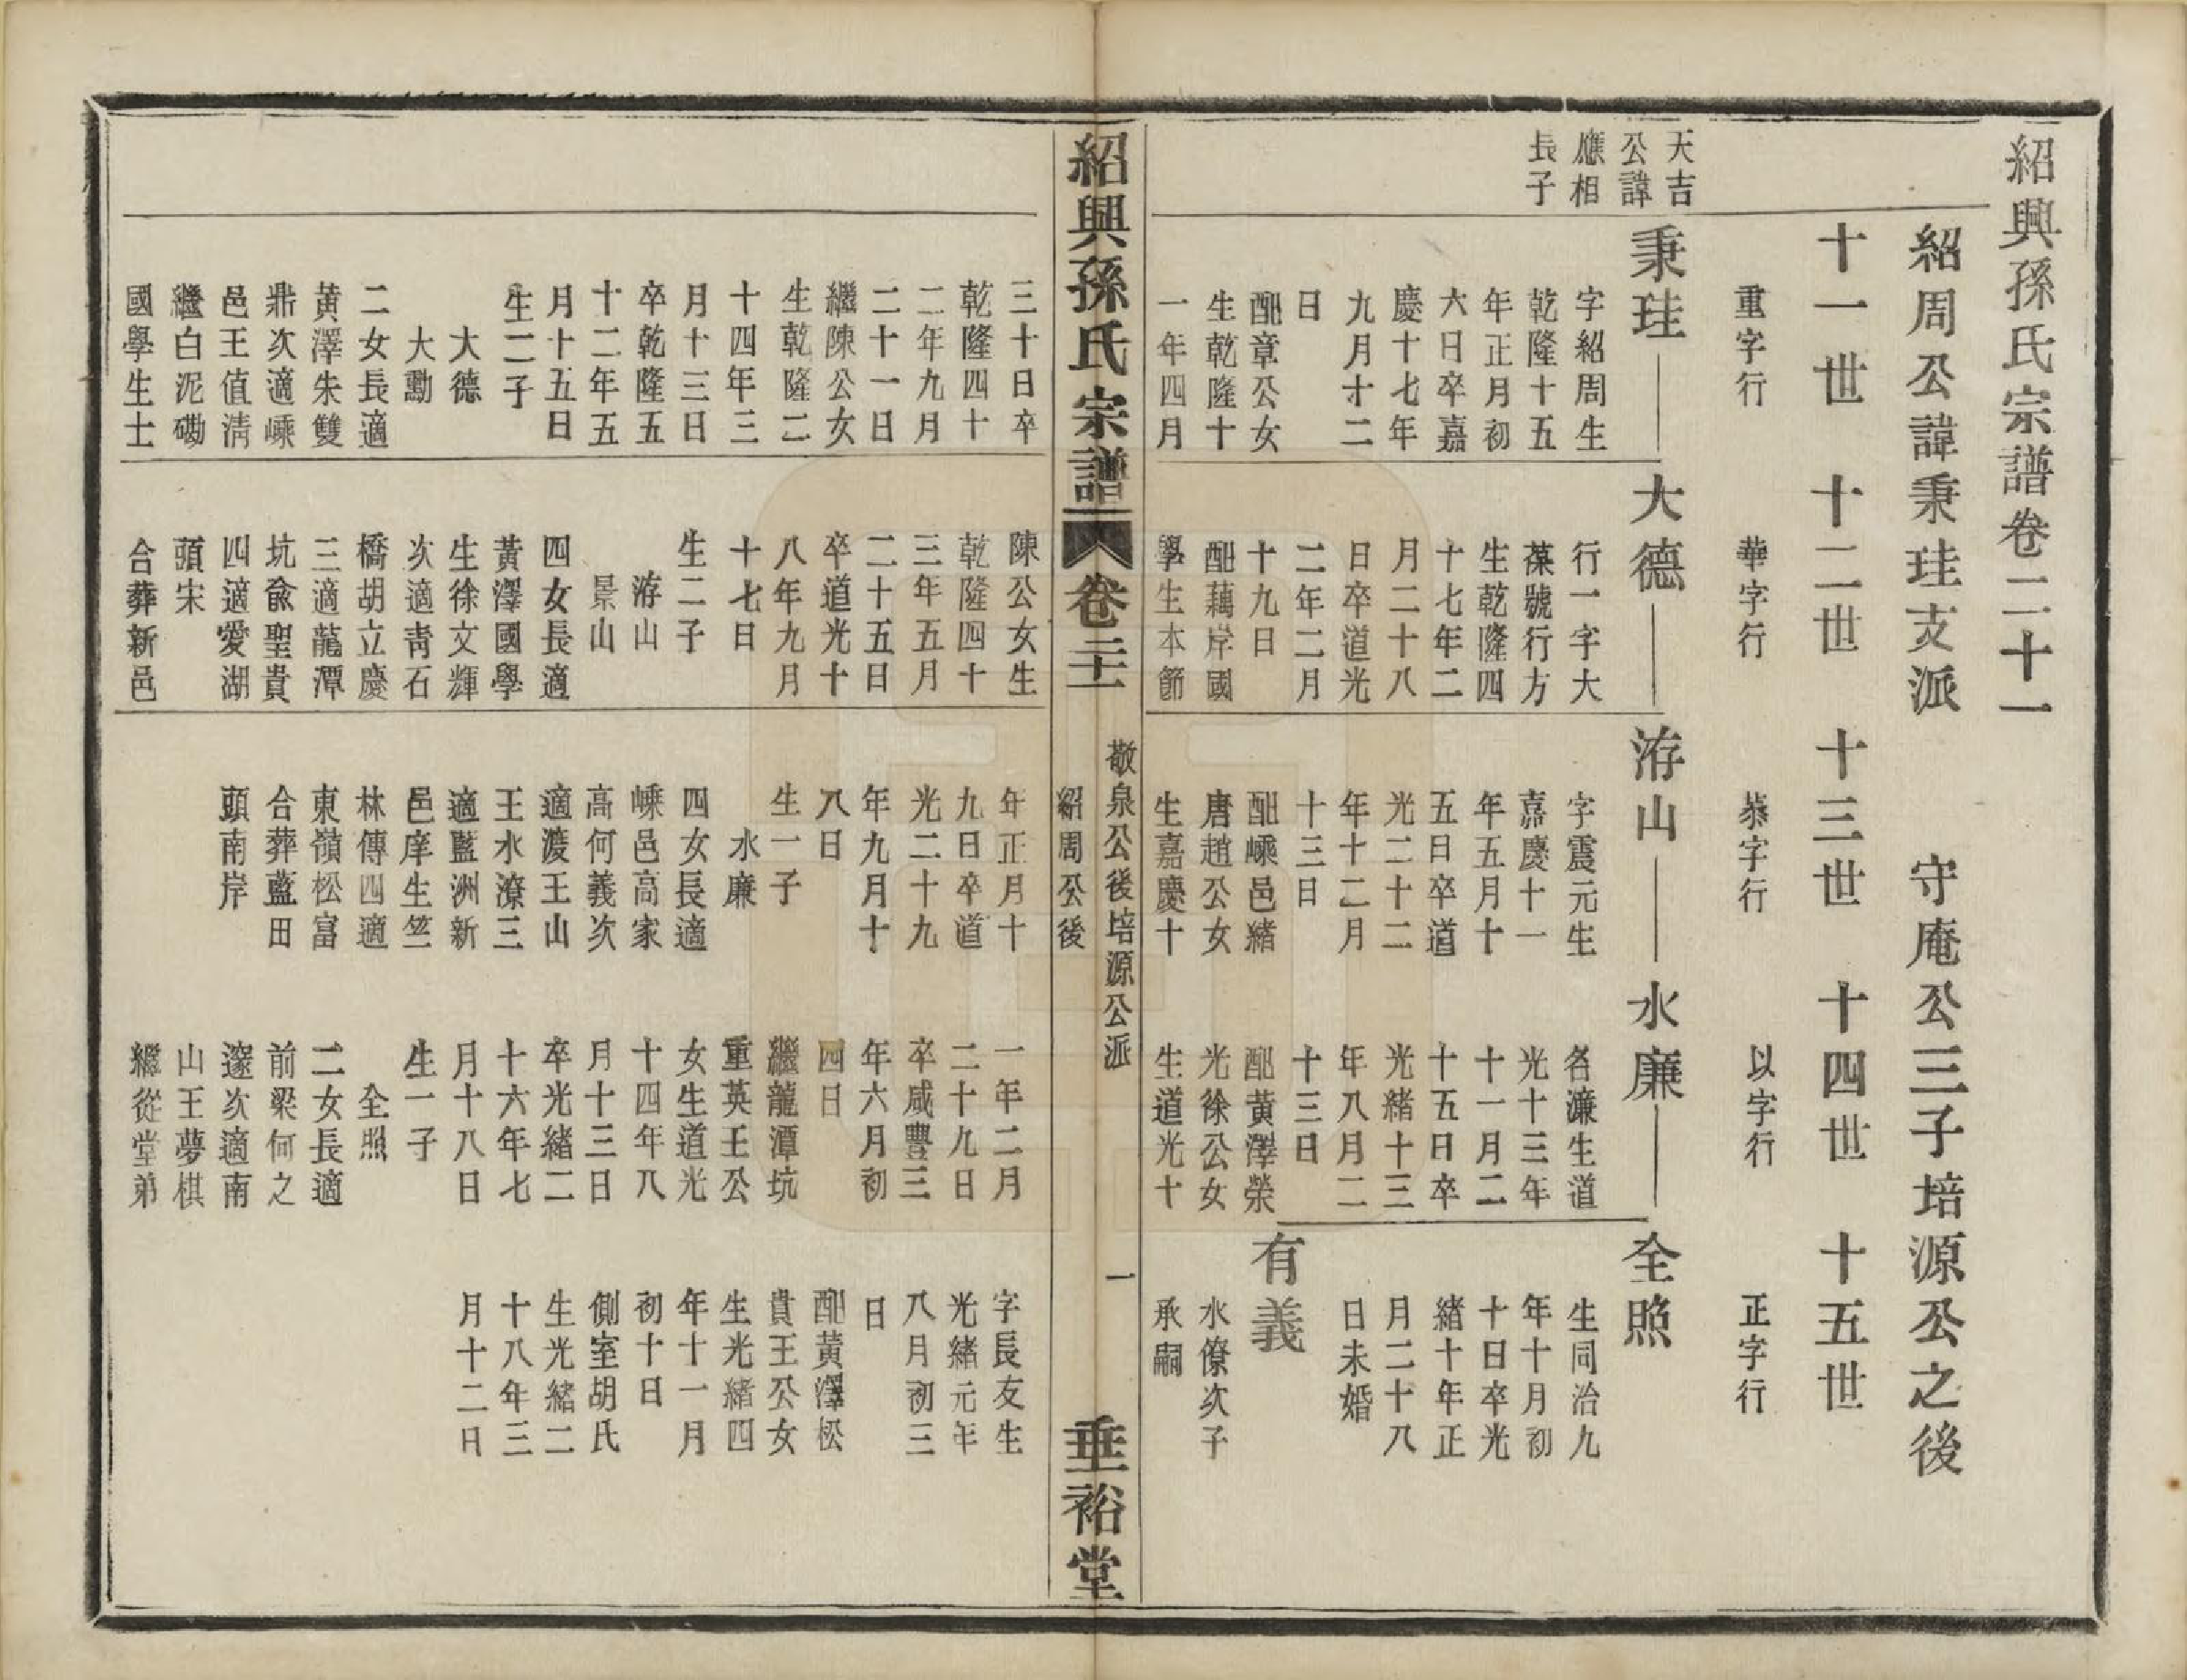 紹興孫氏宗譜卷二十一
紹周公諱秉珪支派　守庵公三子培源公之後
十一世　十二世　十三世　十四世　十五世
重字行　華字行　恭字行　以字行　正字行
天吉
公諱
應相
長子
秉珪
字紹周生
乾隆十五
年正月初
六日卒嘉
慶十七年
九月十二
日
配章公女
生乾隆十
一年四月
三十日卒
乾隆四十
二年九月
二十一日
繼陳公女
生乾隆二
十四年三
月十三日
卒乾隆五
十二年五
月十五日
生二子
大德
大勳
二女長適
黃澤朱雙
鼎次適嵊
邑王值清
繼白泥磡
國學生士
大德
行一字大
葆號行方
生乾隆四
十七年二
月二十八
日卒道光
二年二月
十九日
配藕岸國
學生本節
陳公女生
乾隆四十
三年五月
二十五日
卒道光十
八年九月
十七日
生二子
洊山
景山
四女長適
黃澤國學
生徐文輝
次適青石
橋胡立慶
三適龍潭
坑兪聖貴
四適愛湖
頭宋
合葬新邑
洊山
字震元生
嘉慶十一
年五月十
五日卒道
光二十二
年十二月
十三日
配嵊邑緒
唐趙公女
生嘉慶十
年正月十
九日卒道
光二十九
年九月十
八日
生一子
水廉
四女長適
嵊邑高家
高何義次
適渡王山
王水潦三
適藍洲新
邑庠生竺
林傳四適
東嶺松富
合葬藍田
頭南岸
水廉
名濂生道
光十三年
十一月二
十五日卒
光緒十三
年八月二
十三日
配黃澤榮
光徐公女
生道光十
一年二月
二十九日
卒咸豐三
年六月初
四日
繼龍潭坑
重英王公
女生道光
十四年八
月十三日
卒光緒二
十六年七
月十八日
生一子
全照
二女長適
前梁何之
邃次適南
山王夢棋
繼從堂弟
全照
生同治九
年十月初
十日卒光
緒十年正
月二十八
日未婚
有義
水僚次子
承嗣
字長友生
光緒元年
八月初三
日
配黃澤松
貴王公女
生光緒四
年十一月
初十日
側室胡氏
生光緒二
十八年三
月十二日
紹興孫氏宗譜　卷二十一
敬泉公後培源公派
紹周公後
一
垂裕堂